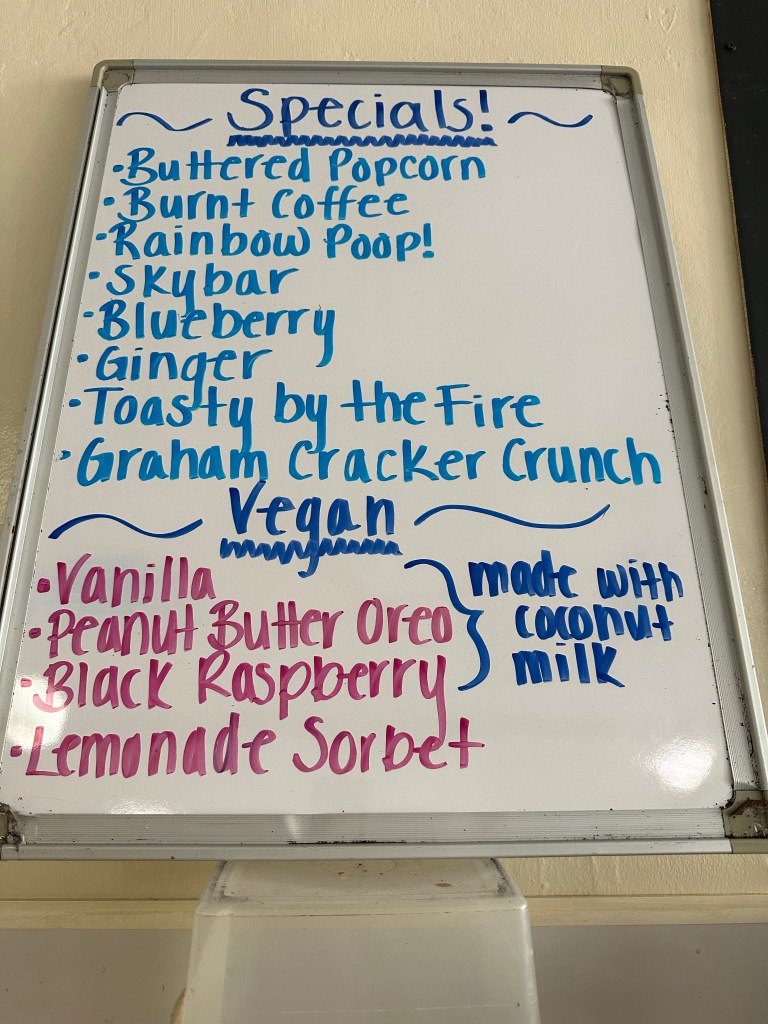 ~ Specials! ~
• Buttered Popcorn
• Burnt Coffee
• Rainbow Poop!
• Skybar
• Blueberry
• Ginger
• Toasty by the Fire
• Graham Cracker Crunch
~ Vegan ~
• Vanilla
• Peanut Butter Oreo
• Black Raspberry
} made with
coconut
milk
• Lemonade Sorbet